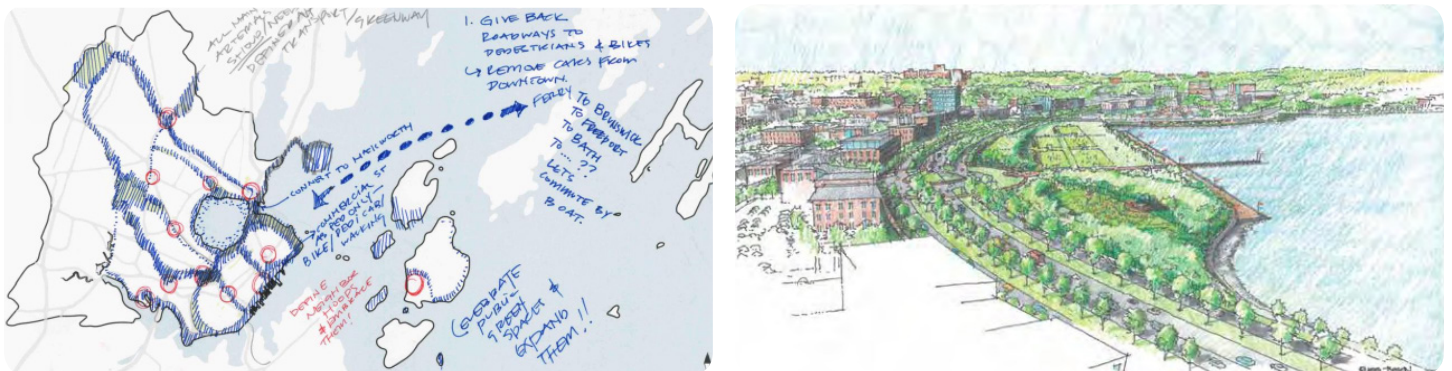 ALL MAIN
ARTERIALS
SHOULD
TRANSPORT/GREENWAY
1. GIVE BACK
ROADWAYS TO
PEDESTRIANS & BIKES
↳ REMOVE CARS FROM
DOWNTOWN.
FERRY TO BRUNSWICK
TO FREEPORT
TO BATH
TO .... ??
LETS
COMMUTE BY
BOAT.
CONNECT TO MACKWORTH
COMMERCIAL ST
AS PED ONLY -
BIKE/PEDICAR/
WALKING
DEFINE
NEIGHBOR
HOODS
& EMBRACE
THEM!
CELEBRATE
PUBLIC
GREEN
SPACES &
EXPAND
THEM!!